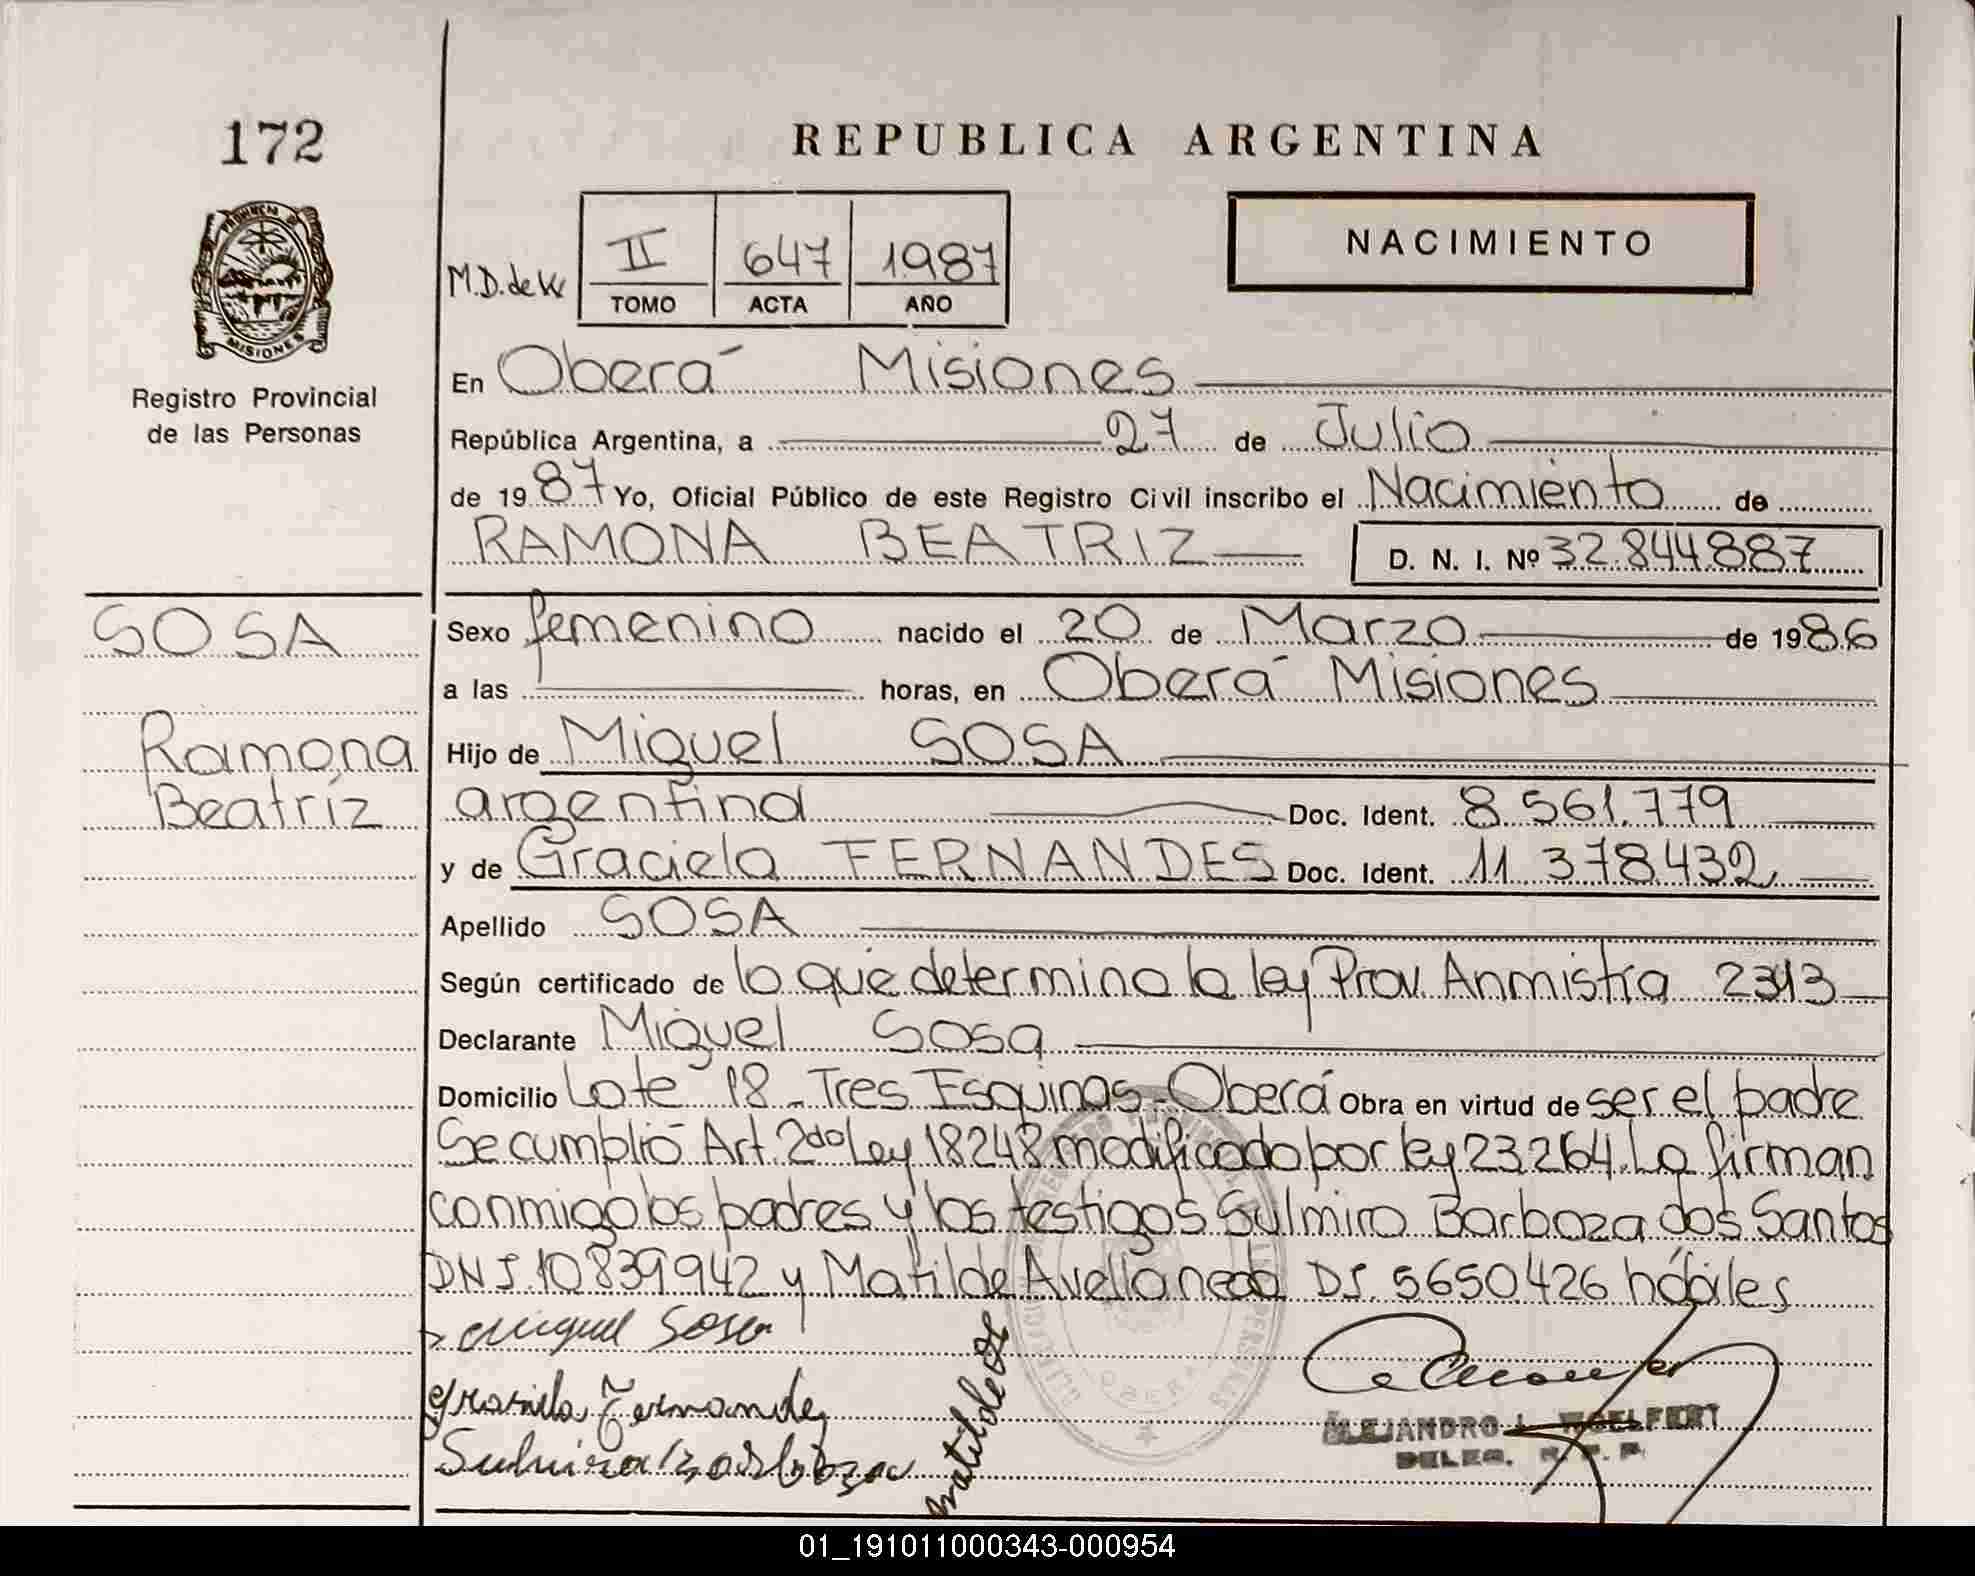 172
REPUBLICA ARGENTINA
PROVINCIA DE
MISIONES
Registro Provincial
de las Personas
M.D. de
II 647 1987
TOMO ACTA AÑO
NACIMIENTO
En Oberá Misiones
República Argentina, a 27 de Julio
de 1987 Yo, Oficial Público de este Registro Civil inscribo el Nacimiento de
RAMONA BEATRIZ D. N. I. Nº 32.844887
SOSA
Ramona
Beatríz
Sexo femenino nacido el 20 de Marzo de 1986
a las horas, en Oberá Misiones
Hijo de Miguel SOSA
argentina Doc. Ident. 8.561.779
y de Graciela FERNANDES Doc. Ident. 11.378.432
Apellido SOSA
Según certificado de lo que determina la ley Prov. Anmistia 2313
Declarante Miguel Sosa
Domicilio Lote 18 - Tres Esquinas - Oberá Obra en virtud de ser el padre
Se cumplió Art. 2do Ley 18248 modificado por ley 23264. La firman
conmigo los padres y los testigos Sulmiro Barboza dos Santos
DNI 10839942 y Matilde Avellaneda DI. 5650426 hábiles
Miguel Sosa
Graciela Fernandez
Matilde
ALEJANDRO L. WOELFERT
DELEG. R. P. P.
01_191011000343-000954